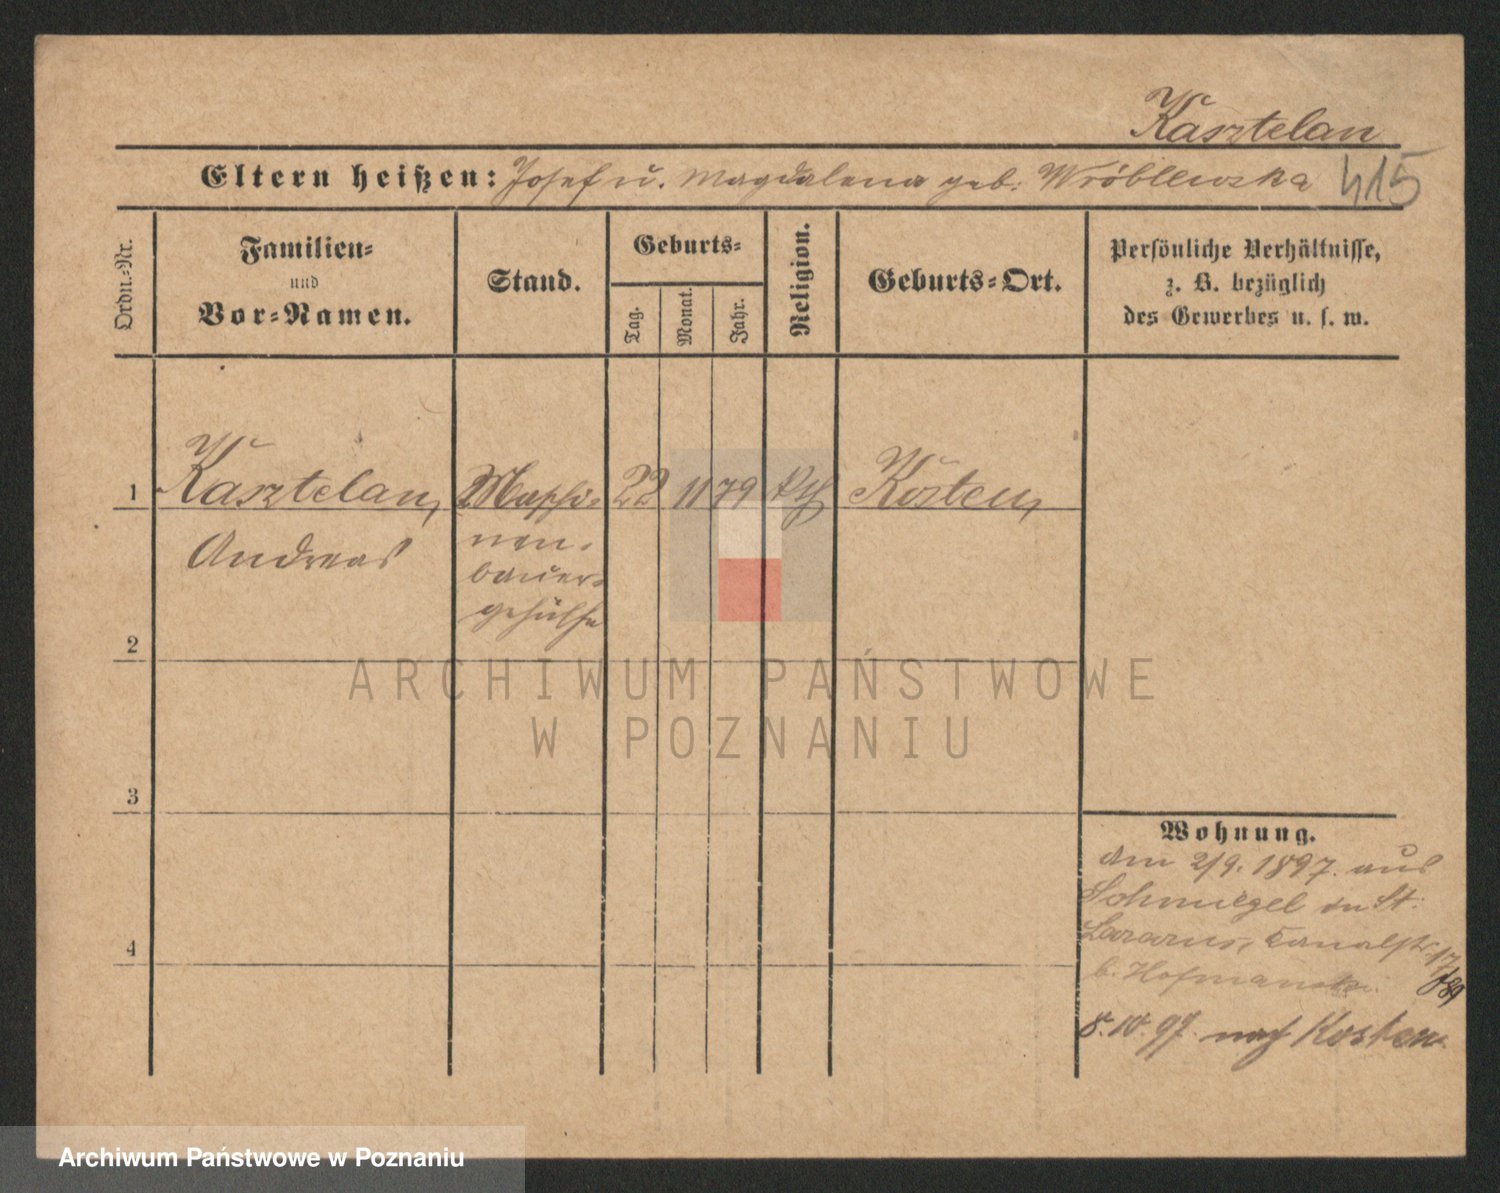 Kasztelan
Eltern heißen: Josef u. Magdalena geb. Wróblewska 415
Ordn.-Nr.
Familien-
und
Vor-Namen.
Stand.
Geburts-
Tag.
Monat.
Jahr.
Religion.
Geburts-Ort.
Persönliche Verhältnisse,
z. B. bezüglich
des Gewerbes u. s. w.
1 Kasztelan, Maschi- 22 11 79 kth Kosten,
Andreas
nen-
bauer-
gehülfe
2
ARCHIWUM PAŃSTWOWE
W POZNANIU
3
Wohnung.
am 2/9. 1897. aus
Schmiegel in St.
Lazarus, Kanalstr. 17
b. Hofmanski
4
8.10.97. nach Kosten
Archiwum Państwowe w Poznaniu